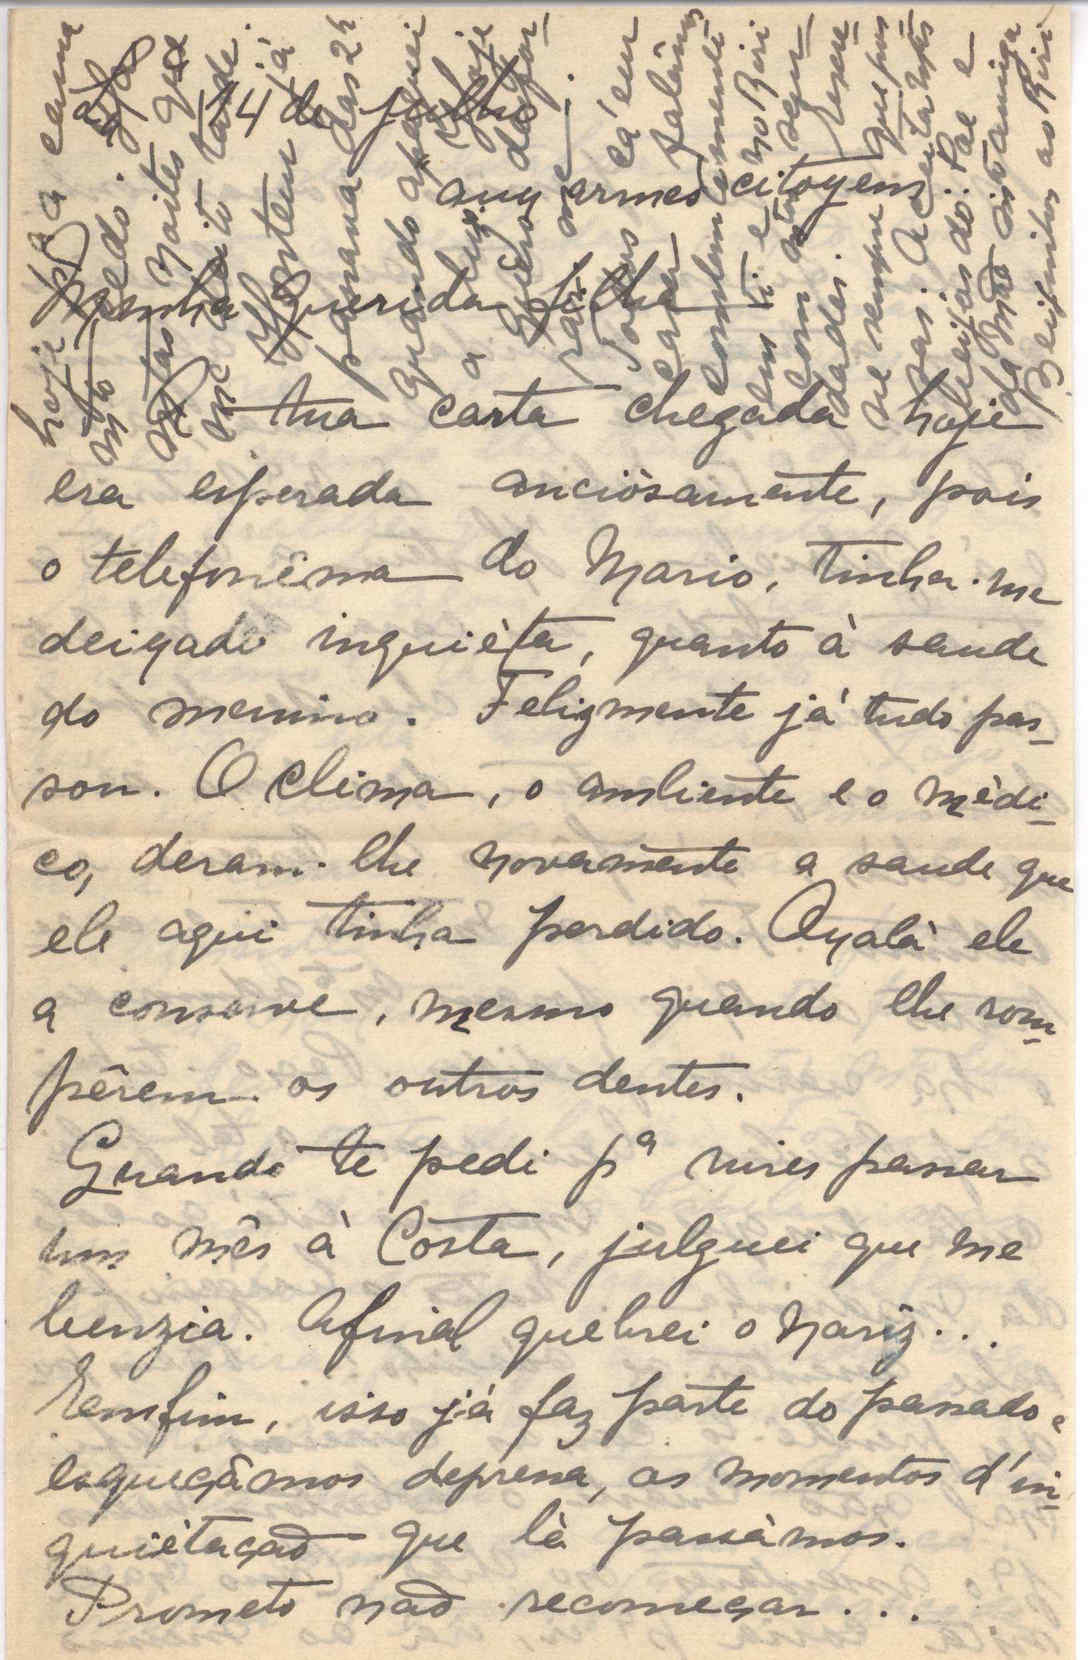 14 de julho
"aux armes citoyens"
Minha querida filha
A tua carta chegada hoje
era esperada anciòsamente, pois
o telefonêma do Mario, tinha-me
deixado inquièta, quanto à saude
do menino. Felizmente já tudo pas-
sou. O clima, o ambiente e o mèdi-
co, deram-lhe novamente a saude que
ele aqui tinha perdido. Oxalà ele
a conserve, mesmo quando lhe rom-
pêrem os outros dentes.
Quando te pedi pª vires passar
um mês à Costa, julguei que me
benzia. Afinal quebrei o nariz...
Emfim, isso já faz parte do passado e
esqueçâmos depressa, os momentos d'in-
quiètação que là passàmos.
Prometo não recomeçar...
hoje
cama
cedo.
noites que
tarde.
Hontem já
passava das 2h
quando apaguei
a luz. hoje
quero
Todos cá em
casa falâmos
constantemente
em ti e no Riri
com
dades.
que pus
Aceita mtas
do Pae e
da Mãe mtº amiga
Beijinhos ao Riri